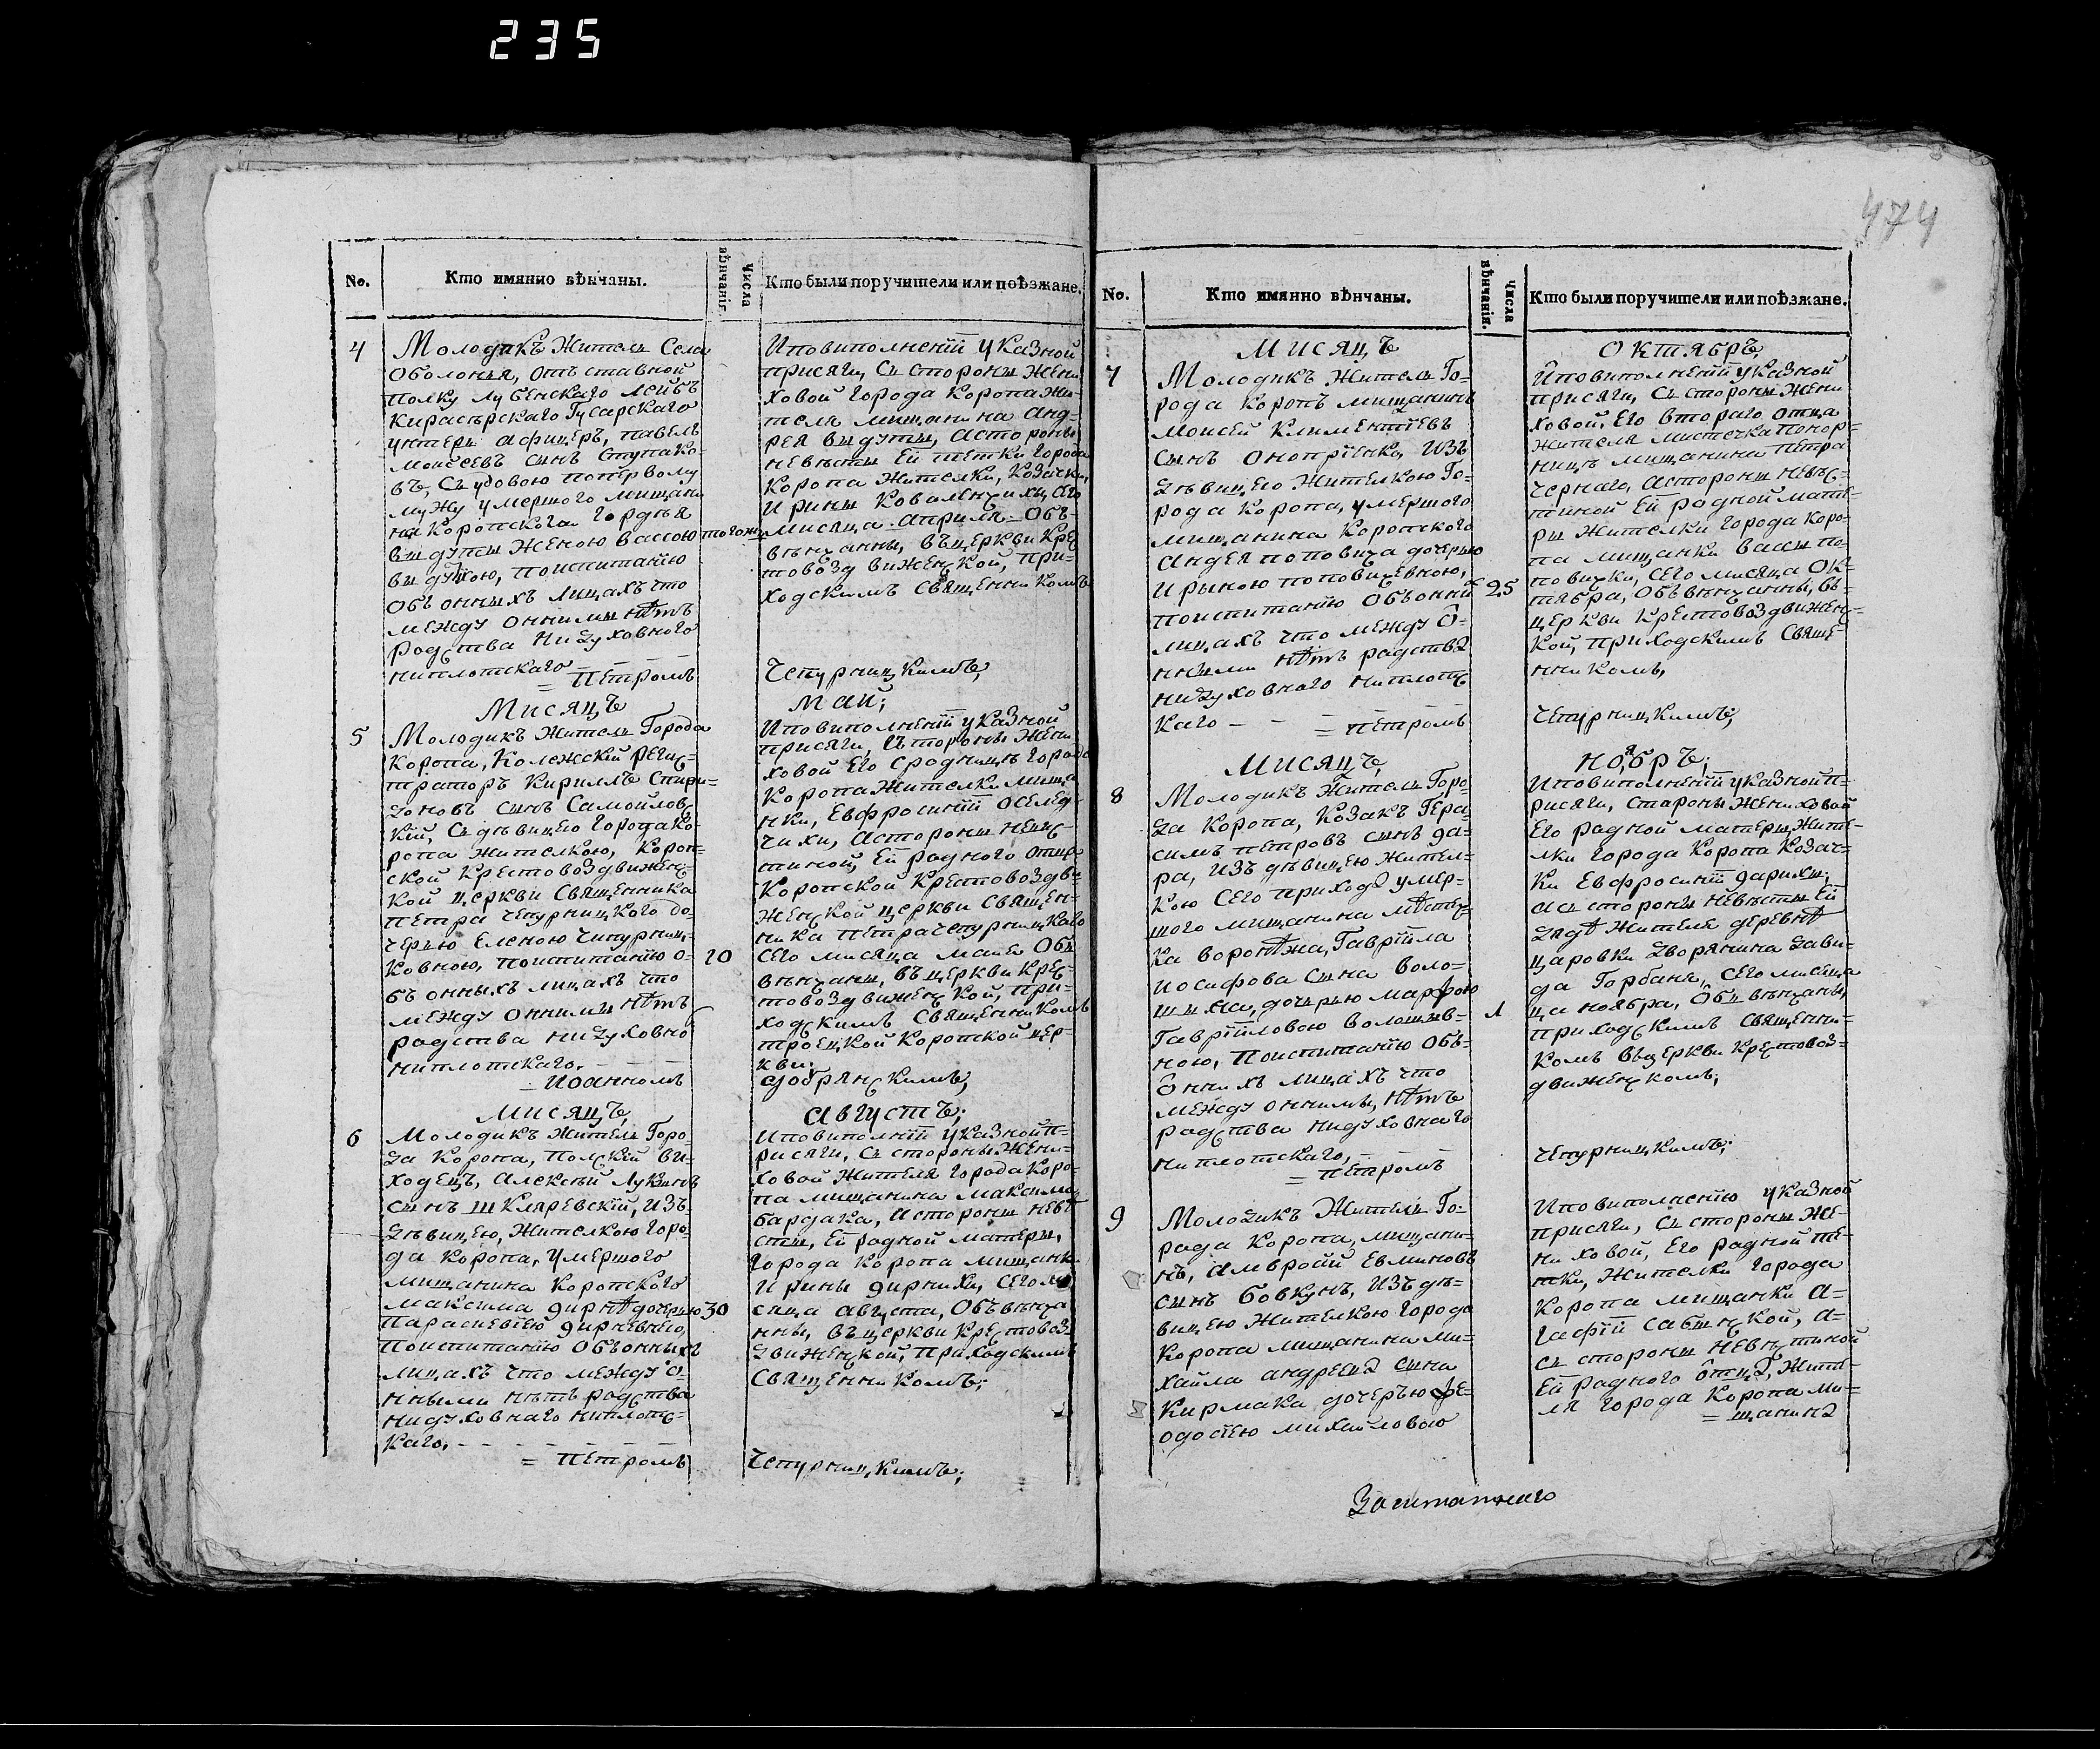 235
474
No.
Кто имянно вѣнчаны.
Числа вѣнчанія.
Кто были поручители или поѣзжане.
4
Молодикъ Житель Села
Оболонья, отъ ставной
полку Лубенскаго Лейбъ
Кирасѣрскаго Гусарскаго
унтеръ афицеръ, павелъ
Моисеевъ сынъ Ступако-
въ, Съ удовою попервому
мужу умершого мищани
на Коропского Гордѣя
выдуты Женою Вассою
выдуткою, поиспитанїю
объ онныхъ лицахъ что
между онними нѣтъ
родства ни духовного
ниплотскаго — = Петромъ
тогожъ
Иповиполненїи указной
присяги, Съ стороны жени
ховой города Коропа Жи-
теля мищанина Анд-
рея выдуты, Астороны
невѣсты Ей тетки города
Коропа Жителки, Козачки,
Ирины Ковалѣнчихи, Сего
мисяца Априля Объ-
вѣнчанны, въ церкви Крес
товоздвиженской, при-
ходскимъ Священникомъ
Чепурницкимъ,
Мисяцъ
май;
5
Молодикъ Житель Города
Коропа, Колежскій регис-
траторъ Кириллъ Спири-
доновъ сынъ Самойлов
кій, Съ дѣвицею города Ко-
ропа жителкою, Короп-
ской Крестовоздвижен-
кой церкви Священника
Петра Чепурницкого до-
черью Еленою Чипурниц-
ковною, поиспитанїю о-
бъ онныхъ лицахъ что
между онними нѣтъ
радства ни духовно
ниплотскаго.
— Иоанномъ
20
Иповиполненїи указной
присяги, Съ тороны жени
ховой Его сродницы города
Коропа Жителки мища
нки, Евфросинїи Оселед-
чихи, Астороны невѣс-
тиной, Ей радного отца
Коропской Крестовоздви-
женской церкви Священ-
ника Петра Чепурницкаго
Сего мисяца маия Объ
вѣнчаны, въ церкви Крес-
товоздвиженской, при-
ходскимъ Священникомъ
троецкой Коропской цер-
кви.
Добрянскимъ,
Мисяцъ
Августъ;
6
Молодикъ Житель Горо-
да Коропа, Полскій ви-
ходецъ, Алексѣй Лукинъ
сынъ Шкляревскїй, изъ
дѣвицею, Жителкою Горо-
да Коропа, умершого
мищанина Коропского
Максима Дирнѣ дочерью
Параскевїею Дирневнею,
поиспитанїю Объ онныхъ
лицахъ что между о-
нными нѣтъ радства
нидуховнаго ниплотс-
каго. — — — —
= Петромъ
30
Иповиполнїи указной п-
рисяги, Съ стороны Жени-
ховой Жителя города Коро-
па мищанина Максима
Бардака, Истороны невѣ
сты, Ей радной матери,
города Коропа мищанк
Ирины Дирнихи, Сего ми
сяца Августа, Объ вѣнча
нны, въ церкви Крестовоз-
движенской, приходскимъ
Священникомъ;
Чепурницкимъ;
No.
Кто имянно вѣнчаны.
Числа вѣнчанія.
Кто были поручители или поѣзжане.
Мисяцъ
Октябръ,
7
Молодикъ Житель Го-
рода Коропъ мищанинъ
Моисей Климентїевъ
сынъ Онопрїенко, изъ
дѣвицею Жителкою Го-
рода Коропа, умершого
мищанина Коропского
Андея поповича дочерью
Ириною поповичевною,
поиспитанїю объонних
лицахъ что между о-
нными нѣтъ радства
нидуховнаго ниплотс
каго — — = Петромъ
25
Иповиполненїи указной
присяги, Съ стороны Жени
ховой, Его второго отца
Жителя мистечка Понор-
ницѣ мищанина Петра
Чернаго, Астороны невѣс-
тиной Ей радной мате-
ры Жителки города Коро-
па мищанки Вассы по-
повички, Сего мисяца Ок-
тября, Объвѣнчанны, въ-
церкви Крестовоздвиженс-
кой, приходскимъ Свяще-
нникомъ,
Чепурницкимъ,
Мисяцъ,
Ноябръ;
8
Молодикъ Житель Горо-
да Коропа, Козакъ Гера-
симъ Петровъ сынъ Да-
ра, изъ дѣвицею Жител-
кою Сего прихода умер-
шого мищанина мѣстеч-
ка Воронѣжа, Гаврїила
Иосифова сына Воло-
шина, дочерью Марфою
Гаврїиловою Волошинв-
ною, Поиспитанїю объ-
онни хъ лицахъ что
между онними, нѣтъ
радства нидуховнаго
ниплотскаго, —
= Петромъ
1
Иповиполненїи указной п-
рисяги, староны Жениховой
Его радной матеры, Жите-
лки города Коропа Козач-
ки Евфросинїи Дарихи,
Асъ стороны невѣсты Ей
дядѣ Жителя деревнѣ
Царовки Дворянина Дави-
да Горбаня, Сего мисяца
ца ноября, Объ вѣнчаны,
приходскимъ Священни-
комъ въ церкви Крестовоз-
движенскомъ;
Чепурницкимъ;
9
Молодикъ Житель Го-
рода Коропа, мищани-
нъ, Амвросїй Евминовъ
сынъ Бовкунъ, изъ дѣ-
вицею Жителкою Города
Коропа мищанина Ми-
хайла Андреева сына
Кирмака дочерью Фе-
одосїею Михайловою
Иповиполненїю указной
присяги, Съ стороны Же-
ниховой, Его радной те-
тки, Жителки Города
Коропа мищанки А-
гафїи Савинской, а-
съ стороны Невѣстиной
Ей радного отца, Жите-
ля города Коропа ми-
= щанина
Заштатнаго